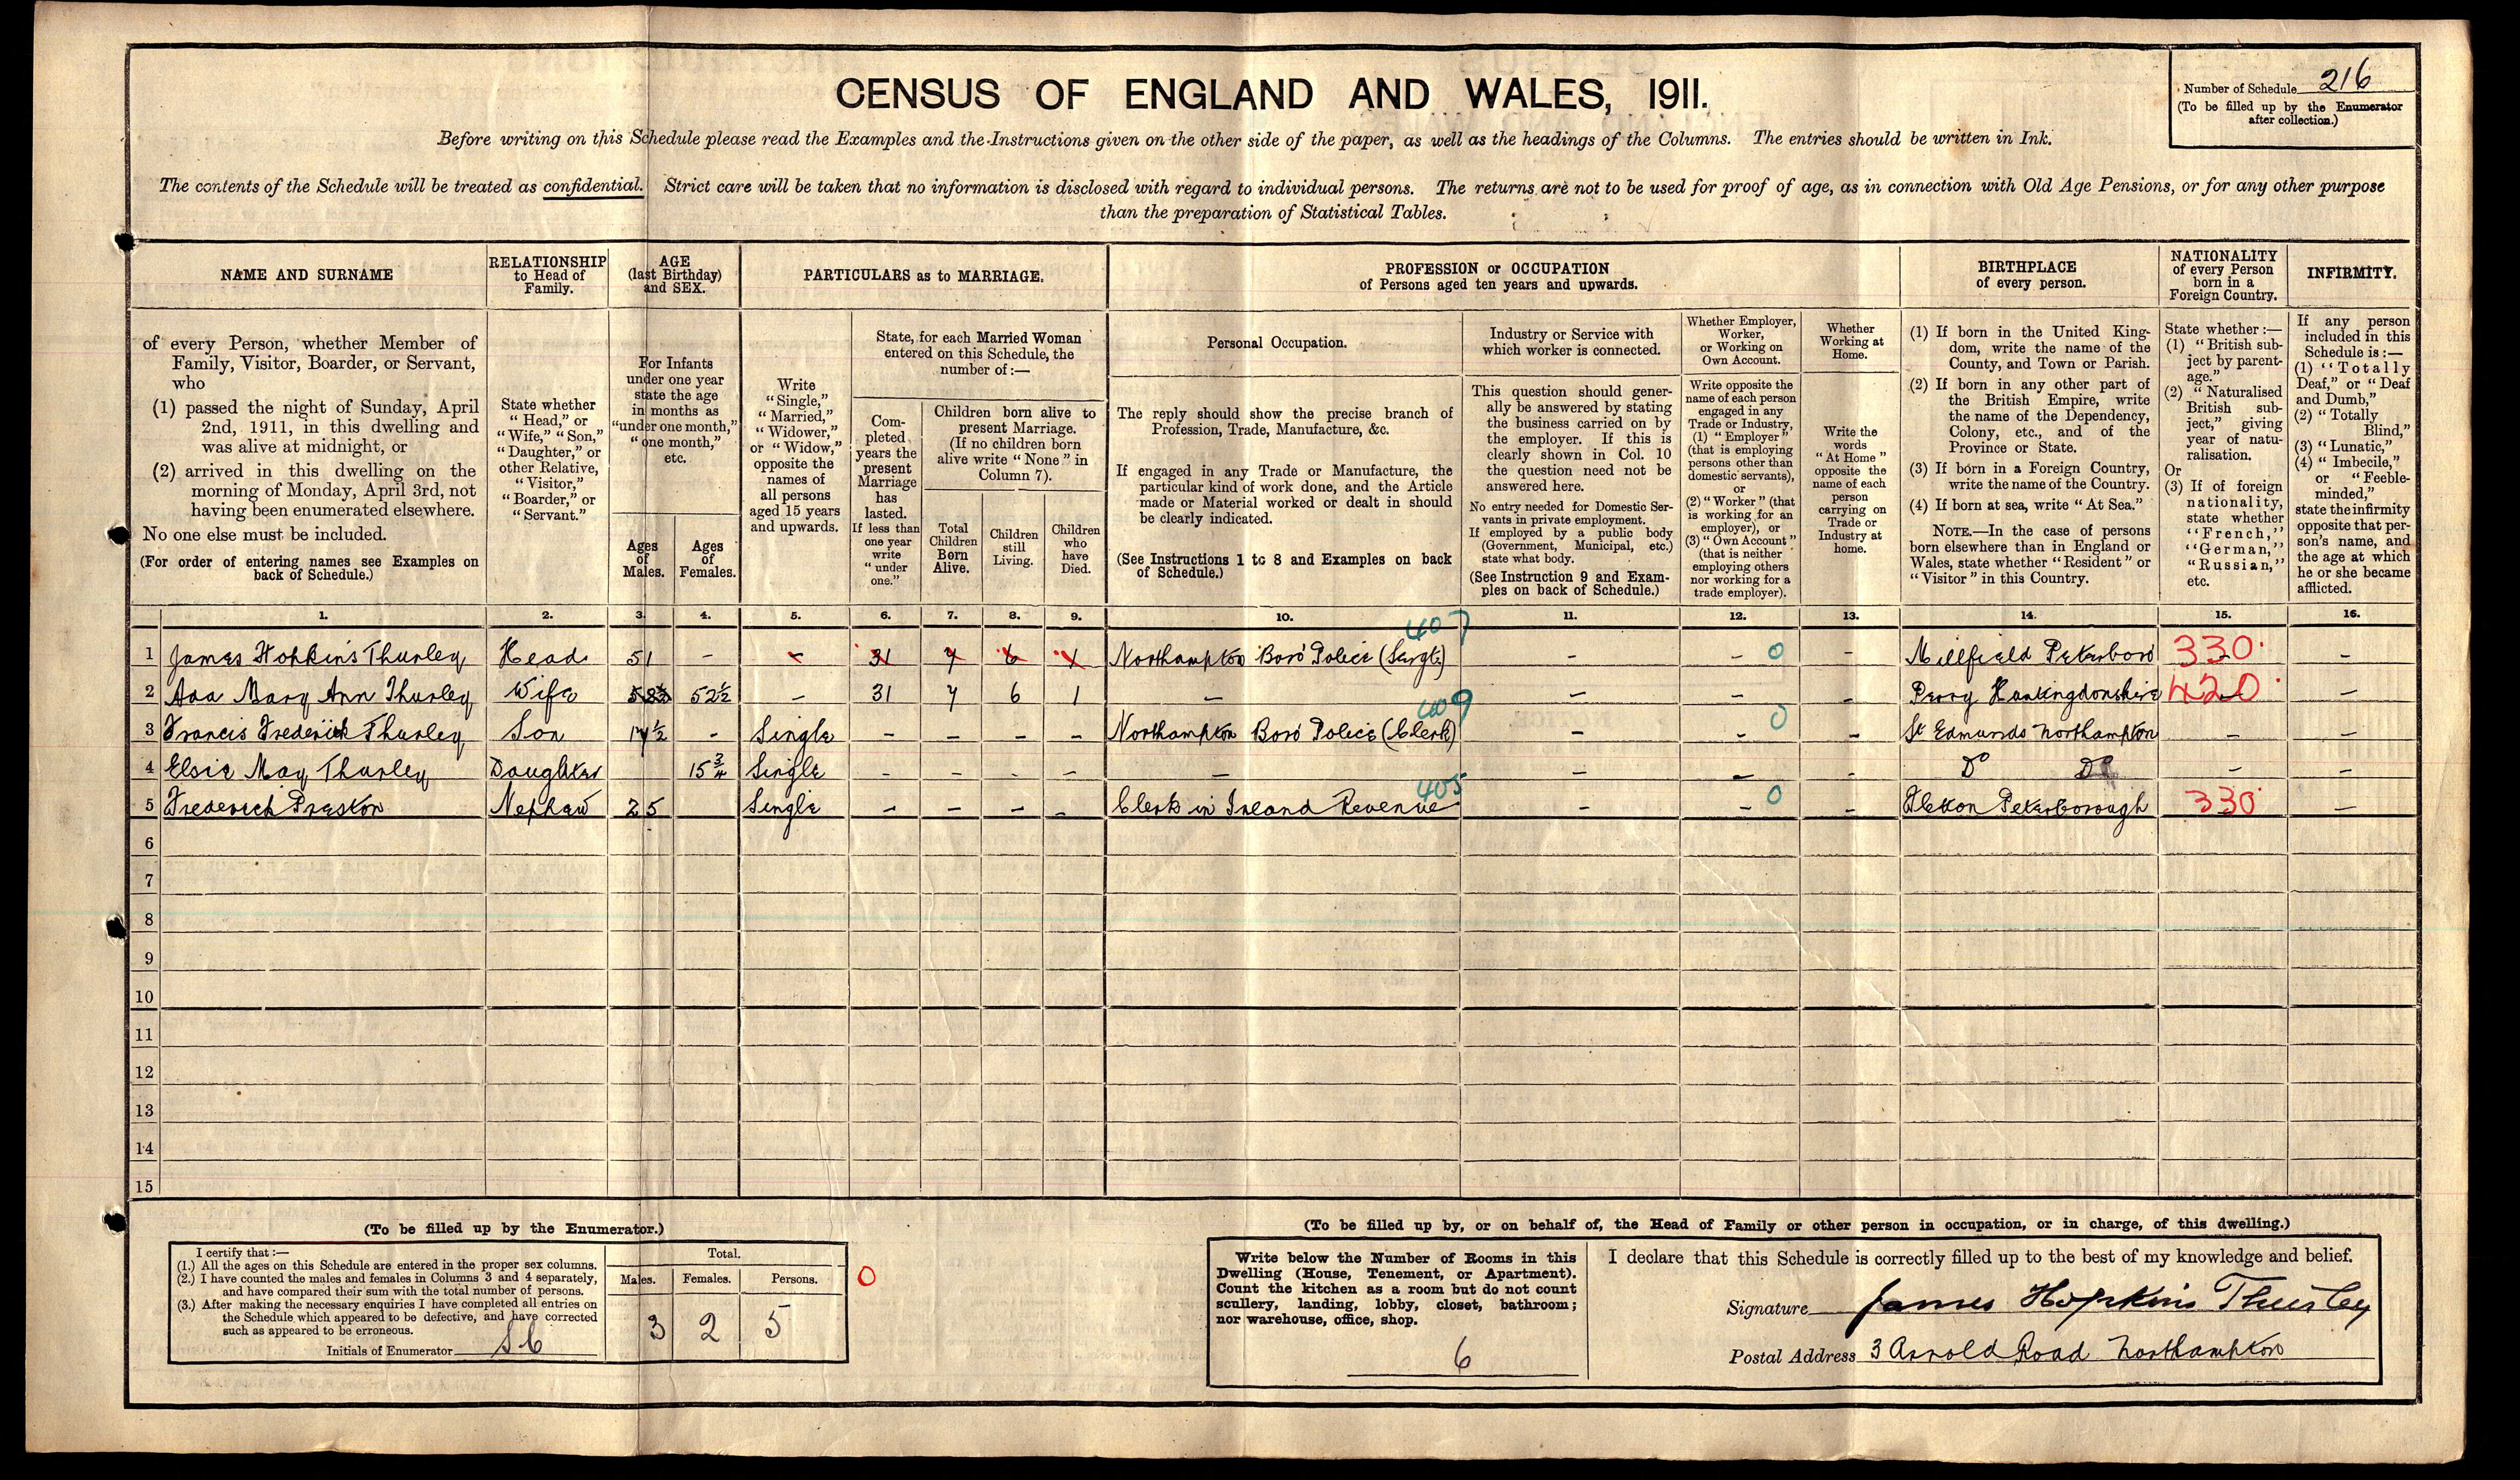 CENSUS OF ENGLAND AND WALES, 1911.
Number of Schedule 216
(To be filled up by the Enumerator
after collection.)
Before writing on this Schedule please read the Examples and the Instructions given on the other side of the paper, as well as the headings of the Columns. The entries should be written in Ink.
The contents of the Schedule will be treated as confidential. Strict care will be taken that no information is disclosed with regard to individual persons. The returns are not to be used for proof of age, as in connection with Old Age Pensions, or for any other purpose
than the preparation of Statistical Tables.
NAME AND SURNAME
of every Person, whether Member of
Family, Visitor, Boarder, or Servant,
who
(1) passed the night of Sunday, April
2nd, 1911, in this dwelling and
was alive at midnight, or
(2) arrived in this dwelling on the
morning of Monday, April 3rd, not
having been enumerated elsewhere.
No one else must be included.
(For order of entering names see Examples on
back of Schedule.)
RELATIONSHIP
to Head of
Family.
State whether
"Head," or
"Wife," "Son,"
"Daughter," or
other Relative,
"Visitor,"
"Boarder," or
"Servant."
AGE
(last Birthday)
and SEX.
For Infants
under one year
state the age
in months as
"under one month,"
"one month,"
etc.
Ages
of
Males.
Ages
of
Females.
PARTICULARS as to MARRIAGE.
Write
"Single,"
"Married,"
"Widower,"
or "Widow,"
opposite the
names of
all persons
aged 15 years
and upwards.
State, for each Married Woman
entered on this Schedule, the
number of:—
Com-
pleted
years the
present
Marriage
has
lasted.
If less than
one year
write
"under
one."
Children born alive to
present Marriage.
(If no children born
alive write "None" in
Column 7).
Total
Children
Born
Alive.
Children
still
Living.
Children
who
have
Died.
PROFESSION or OCCUPATION
of Persons aged ten years and upwards.
Personal Occupation.
The reply should show the precise branch of
Profession, Trade, Manufacture, &c.
If engaged in any Trade or Manufacture, the
particular kind of work done, and the Article
made or Material worked or dealt in should
be clearly indicated.
(See Instructions 1 to 8 and Examples on back
of Schedule.)
Industry or Service with
which worker is connected.
This question should gener-
ally be answered by stating
the business carried on by
the employer. If this is
clearly shown in Col. 10
the question need not be
answered here.
No entry needed for Domestic Ser-
vants in private employment.
If employed by a public body
(Government, Municipal, etc.)
state what body.
(See Instruction 9 and Exam-
ples on back of Schedule.)
Whether Employer,
Worker,
or Working on
Own Account.
Write opposite the
name of each person
engaged in any
Trade or Industry,
(1) "Employer"
(that is employing
persons other than
domestic servants),
or
(2) "Worker" (that
is working for an
employer), or
(3) "Own Account"
(that is neither
employing others
nor working for a
trade employer).
Whether
Working at
Home.
Write the
words
"At Home"
opposite the
name of each
person
carrying on
Trade or
Industry at
home.
BIRTHPLACE
of every person.
(1) If born in the United King-
dom, write the name of the
County, and Town or Parish.
(2) If born in any other part of
the British Empire, write
the name of the Dependency,
Colony, etc., and of the
Province or State.
(3) If born in a Foreign Country,
write the name of the Country.
(4) If born at sea, write "At Sea."
NOTE.—In the case of persons
born elsewhere than in England or
Wales, state whether "Resident" or
"Visitor" in this Country.
NATIONALITY
of every Person
born in a
Foreign Country.
State whether:—
(1) "British sub-
ject by parent-
age."
(2) "Naturalised
British sub-
ject," giving
year of natu-
ralisation.
Or
(3) If of foreign
nationality,
state whether
"French,"
"German,"
"Russian,"
etc.
INFIRMITY.
If any person
included in this
Schedule is:—
(1) "Totally
Deaf," or "Deaf
and Dumb,"
(2) "Totally
Blind,"
(3) "Lunatic,"
(4) "Imbecile,"
or "Feeble-
minded,"
state the infirmity
opposite that per-
son's name, and
the age at which
he or she became
afflicted.
1. 2. 3. 4. 5. 6. 7. 8. 9. 10. 11. 12. 13. 14. 15. 16.
407
1 James Hopkins Thurley Head 51 – – 31 7 6 1 Northampton Boro' Police (Sergt.) – – 0 – Millfield Peterboro 330 –
2 Ada Mary Ann Thurley Wife 52½ – 31 7 6 1 – – – – Perry Huntingdonshire 420 –
409
3 Francis Frederick Thurley Son 17½ – Single – – – – Northampton Boro' Police (Clerk) – – 0 – St Edmunds Northampton – –
4 Elsie May Thurley Daughter 15¾ Single – – – – – – – – Do Do – –
405
5 Frederick Preston Nephew 25 Single – – – – Clerk in Inland Revenue – – 0 – Fletton Peterborough 330 –
6
7
8
9
10
11
12
13
14
15
(To be filled up by the Enumerator.)
I certify that:—
(1.) All the ages on this Schedule are entered in the proper sex columns.
(2.) I have counted the males and females in Columns 3 and 4 separately,
and have compared their sum with the total number of persons.
(3.) After making the necessary enquiries I have completed all entries on
the Schedule which appeared to be defective, and have corrected
such as appeared to be erroneous.
Initials of Enumerator
Total.
Males. Females. Persons.
3 2 5
0
(To be filled up by, or on behalf of, the Head of Family or other person in occupation, or in charge, of this dwelling.)
Write below the Number of Rooms in this
Dwelling (House, Tenement, or Apartment).
Count the kitchen as a room but do not count
scullery, landing, lobby, closet, bathroom;
nor warehouse, office, shop.
6
I declare that this Schedule is correctly filled up to the best of my knowledge and belief.
Signature James Hopkins Thurley
Postal Address 3 Arnold Road Northampton